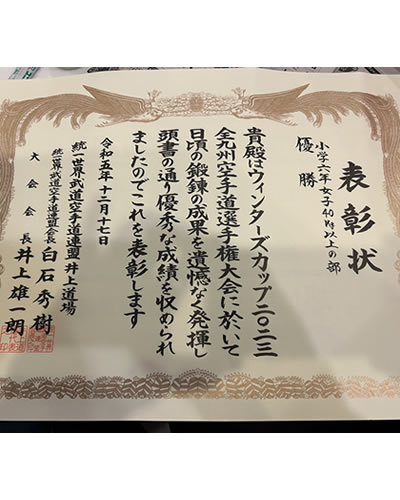 表彰状
小学六年女子40kg以上の部
優勝
貴殿はウィンターズカップ二〇二三
全九州空手道選手権大会に於いて
日頃の鍛錬の成果を遺憾なく発揮し
頭書の通り優秀な成績を収められ
ましたのでこれを表彰します
令和五年十二月十七日
統一世界武道空手道連盟 井上道場
統一世界武道空手道連盟会長 白石秀樹
大会会長 井上雄一朗